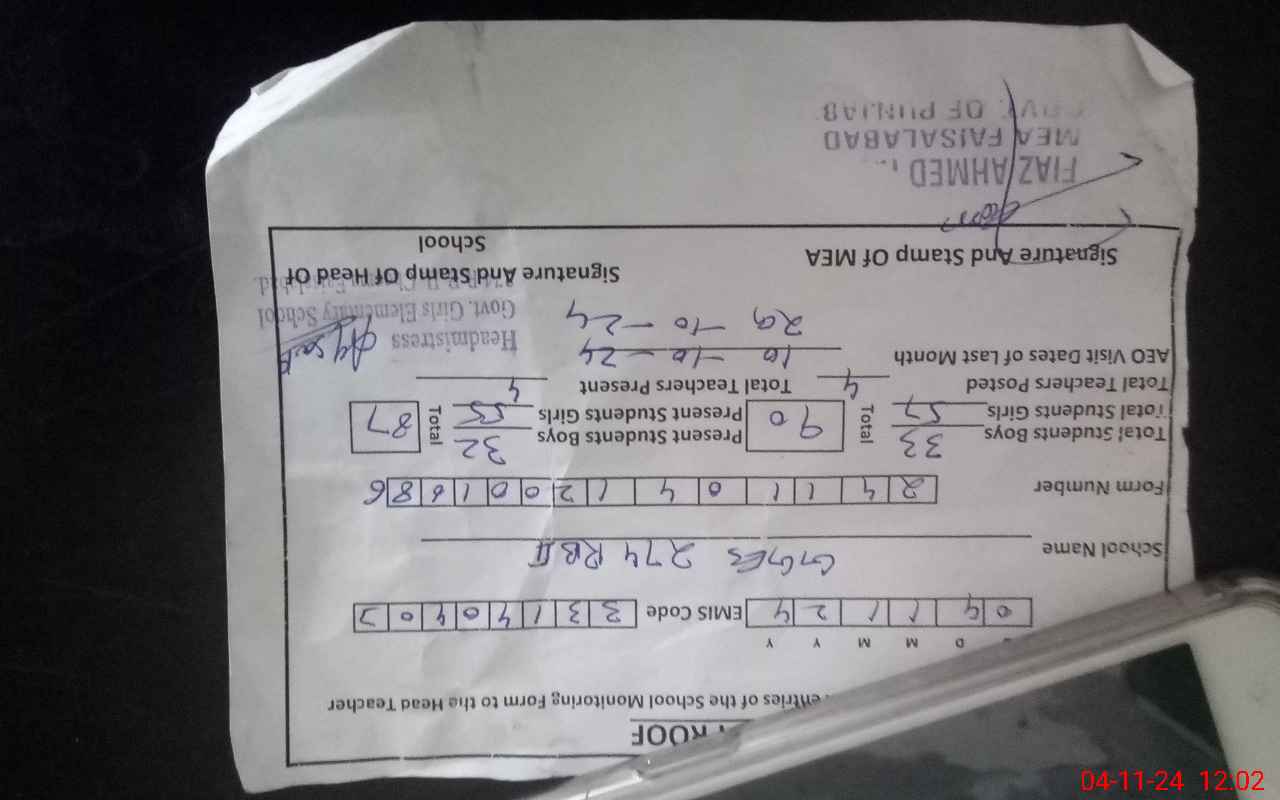 ROOF
entries of the School Monitoring Form to the Head Teacher
D M M Y Y
0 4 1 1 2 4 EMIS Code 3 3 1 4 0 4 0 2
School Name GGES 274 RB II
Form Number 2 4 1 1 0 4 1 2 0 0 1 6 8 6
Total Students Boys 33 Total 90 Present Students Boys 32 Total 87
Total Students Girls 57 Present Students Girls 55
Total Teachers Posted 4 Total Teachers Present 4
AEO Visit Dates of Last Month 10-10-24
29-10-24
Headmistress
Govt. Girls Elementary School
Signature And Stamp Of MEA Signature And Stamp Of Head Of
School
FIAZ AHMED
MEA FAISALABAD
GOVT. OF PUNJAB
04-11-24 12.02